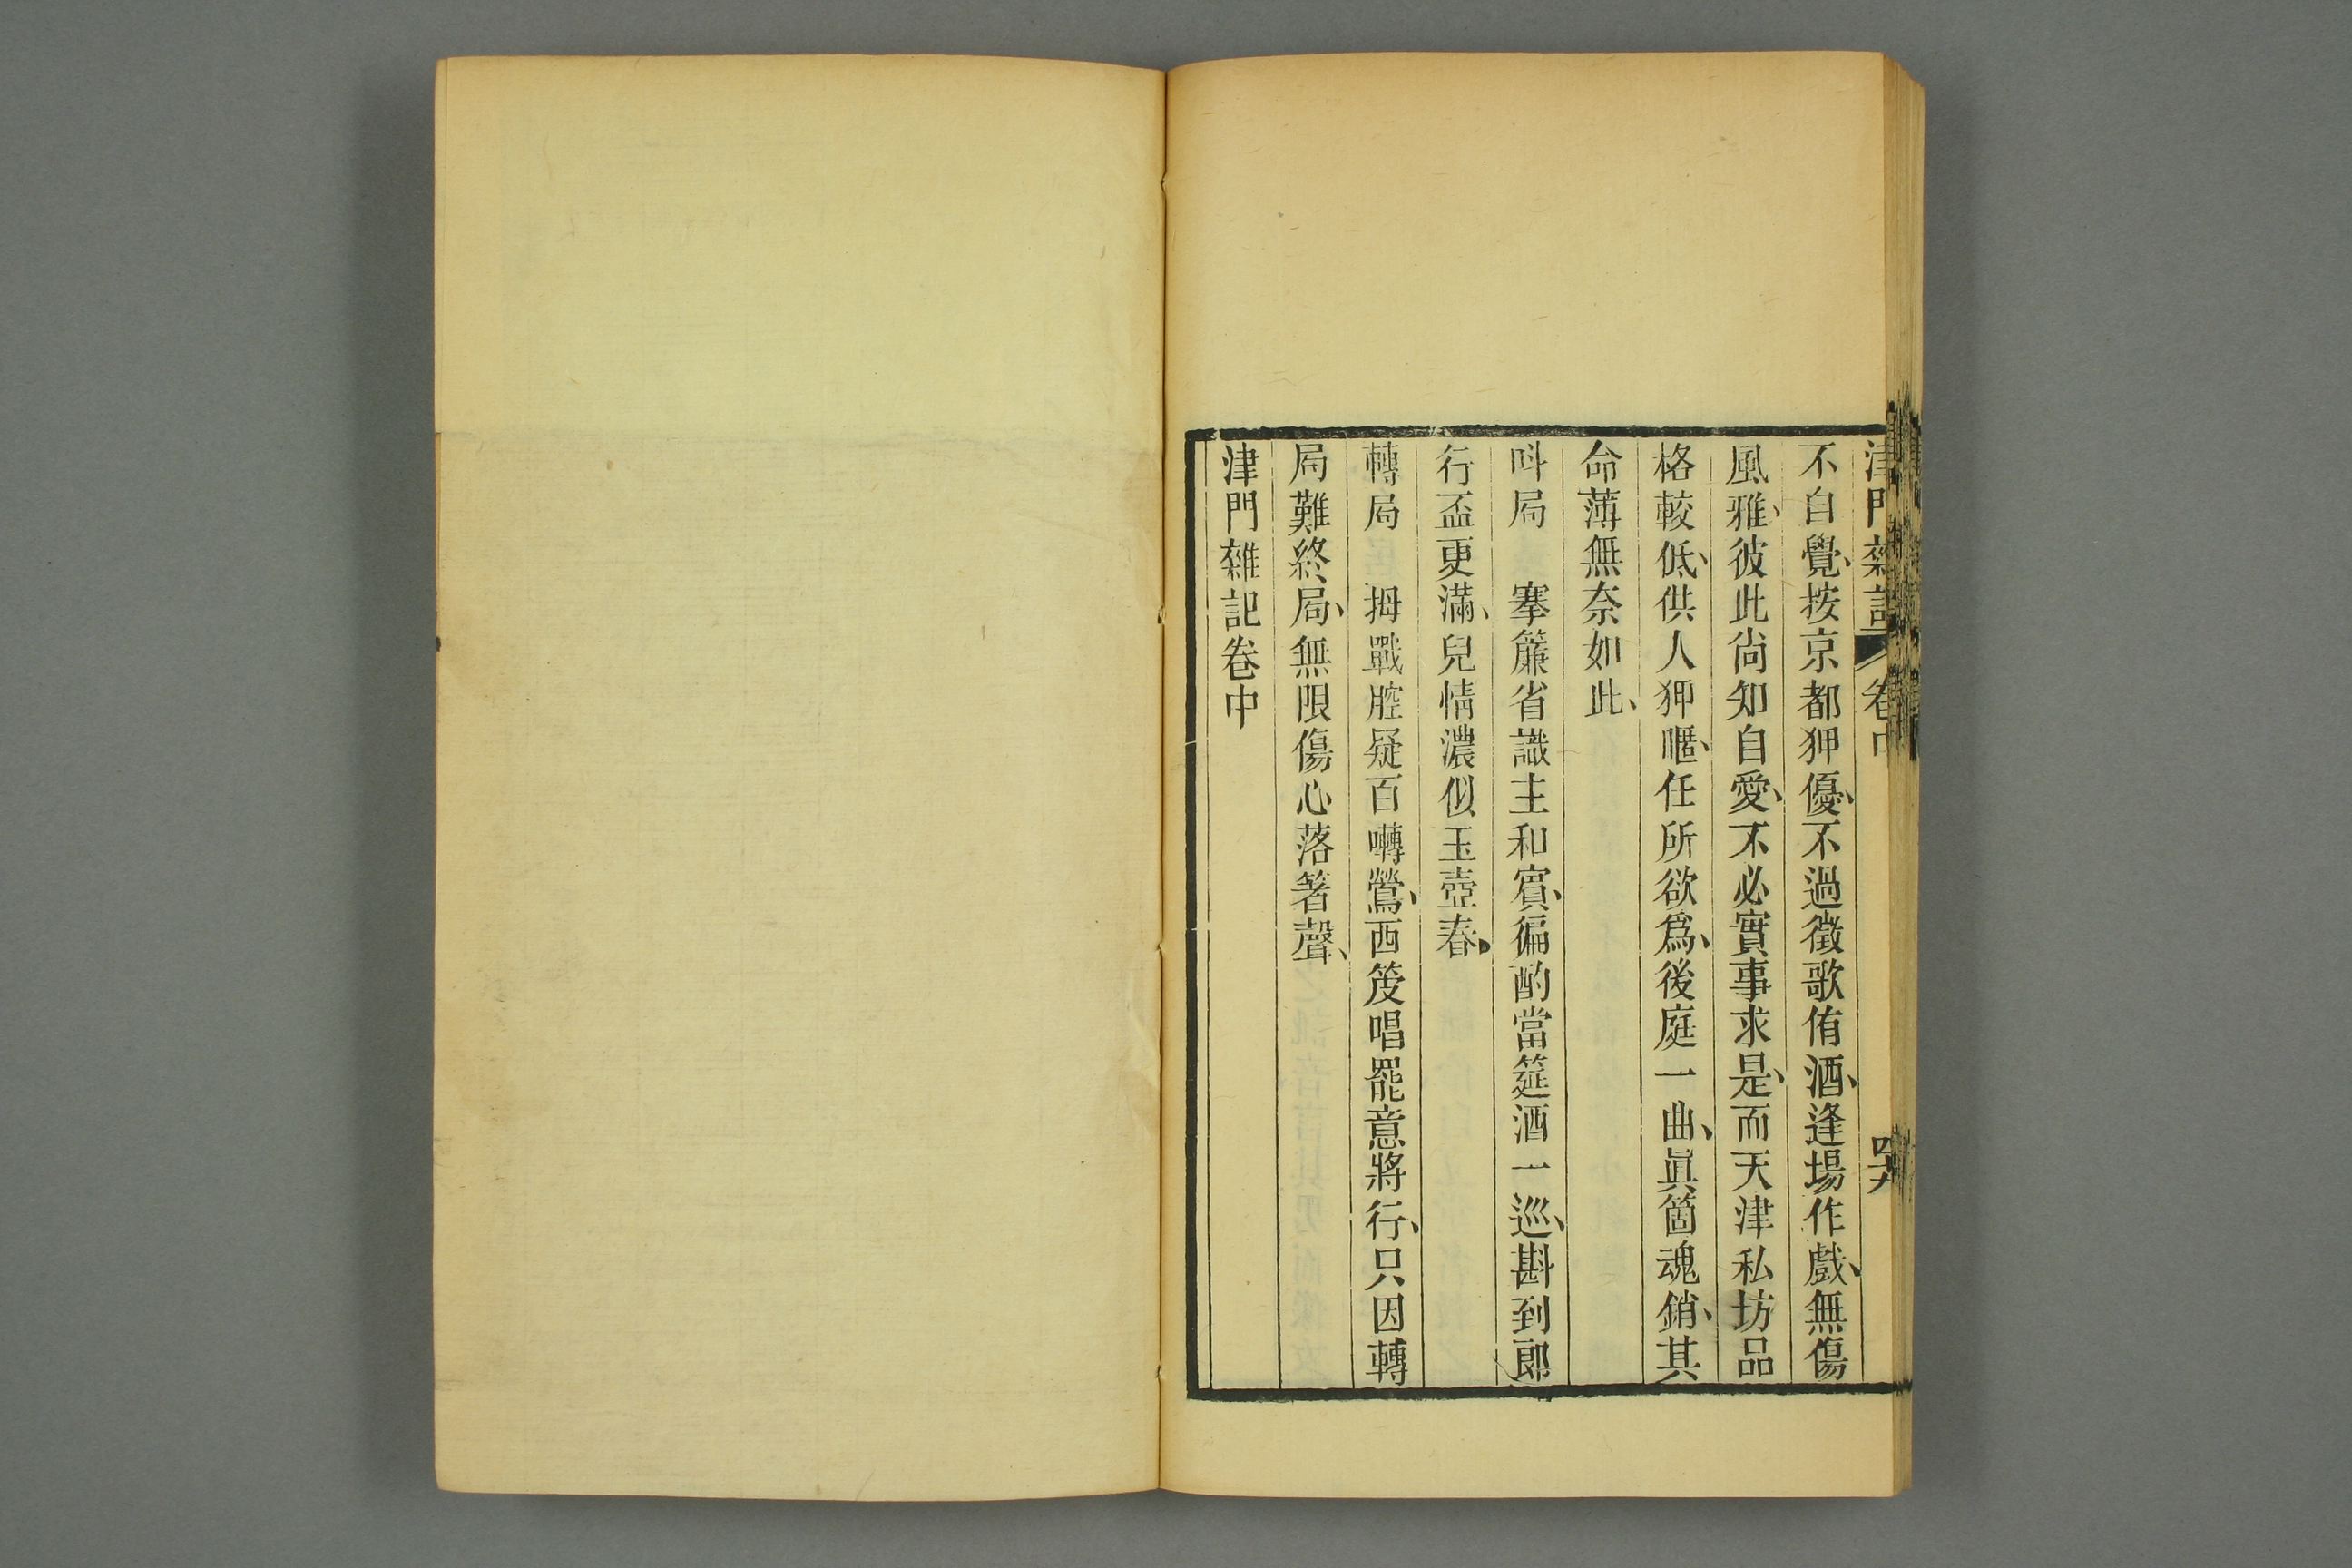 津門雜記 卷中
不自覺、按京都狎優、不過徵歌侑酒、逢場作戲、無傷
風雅、彼此尙知自愛、不必實事求是、而天津私坊品
格較低、供人狎暱、任所欲爲、後庭一曲、眞箇魂銷、其
命薄無奈如此、
呌局　搴簾省識主和賓、徧酌當筵酒一巡、斟到郞
行盃更滿、兒情濃似玉壺春。
轉局　拇戰腔疑百囀鶯、西筊唱罷意將行、只因轉
局難終局、無限傷心落箸聲、
津門雜記卷中